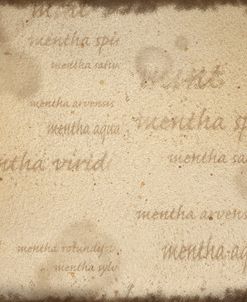 mint
mentha spi
mentha sativ
mentha arvensis
mentha aqua
mentha virid
mentha rotundi
mentha sylv
mint
mentha sp
mentha sa
mentha arvens
mentha aq